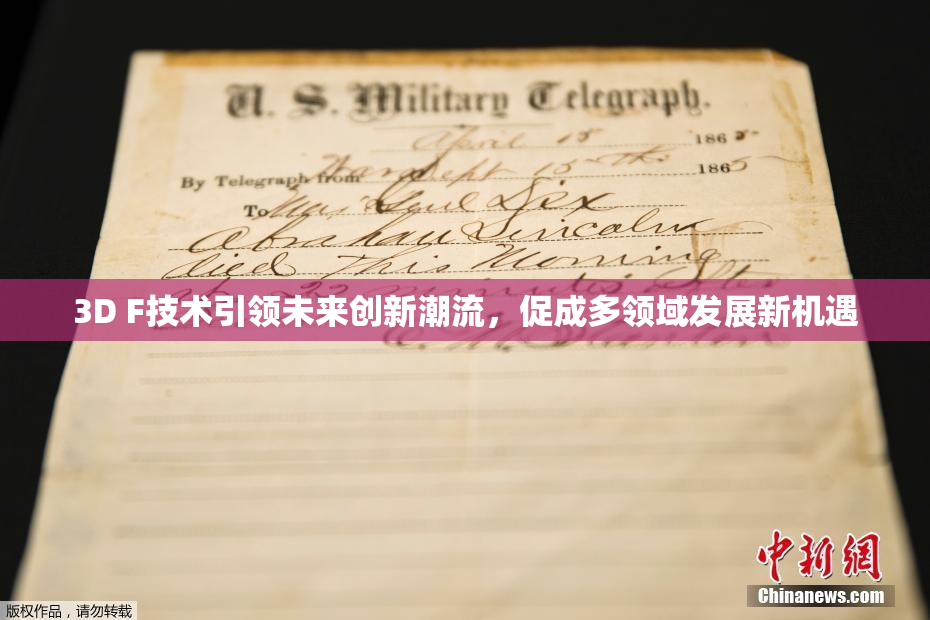 U. S. Military Telegraph.
April 15 1865
By Telegraph from War Dept 15th 1865
To Maj Genl Dix
Abraham Lincoln
died This Morning
22 minutes after
3D F技术引领未来创新潮流，促成多领域发展新机遇
E. M. Stanton
中新网
Chinanews.com
版权作品，请勿转载